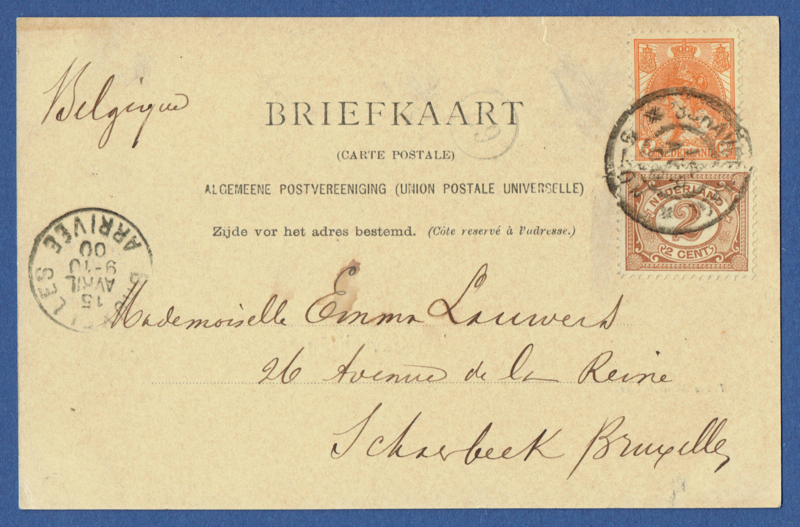 Belgique
BRIEFKAART
(CARTE POSTALE)
ALGEMEENE POSTVEREENIGING (UNION POSTALE UNIVERSELLE)
Zijde vor het adres bestemd. (Côte reservé à l'adresse.)
NEDERLAND
NEDERLAND
2
2 CENT
ARRIVÉE
00
9-10
AVRIL
15
Mademoiselle Emma Lauwers
26 Avenue de la Reine
Schaerbeek Bruxelles